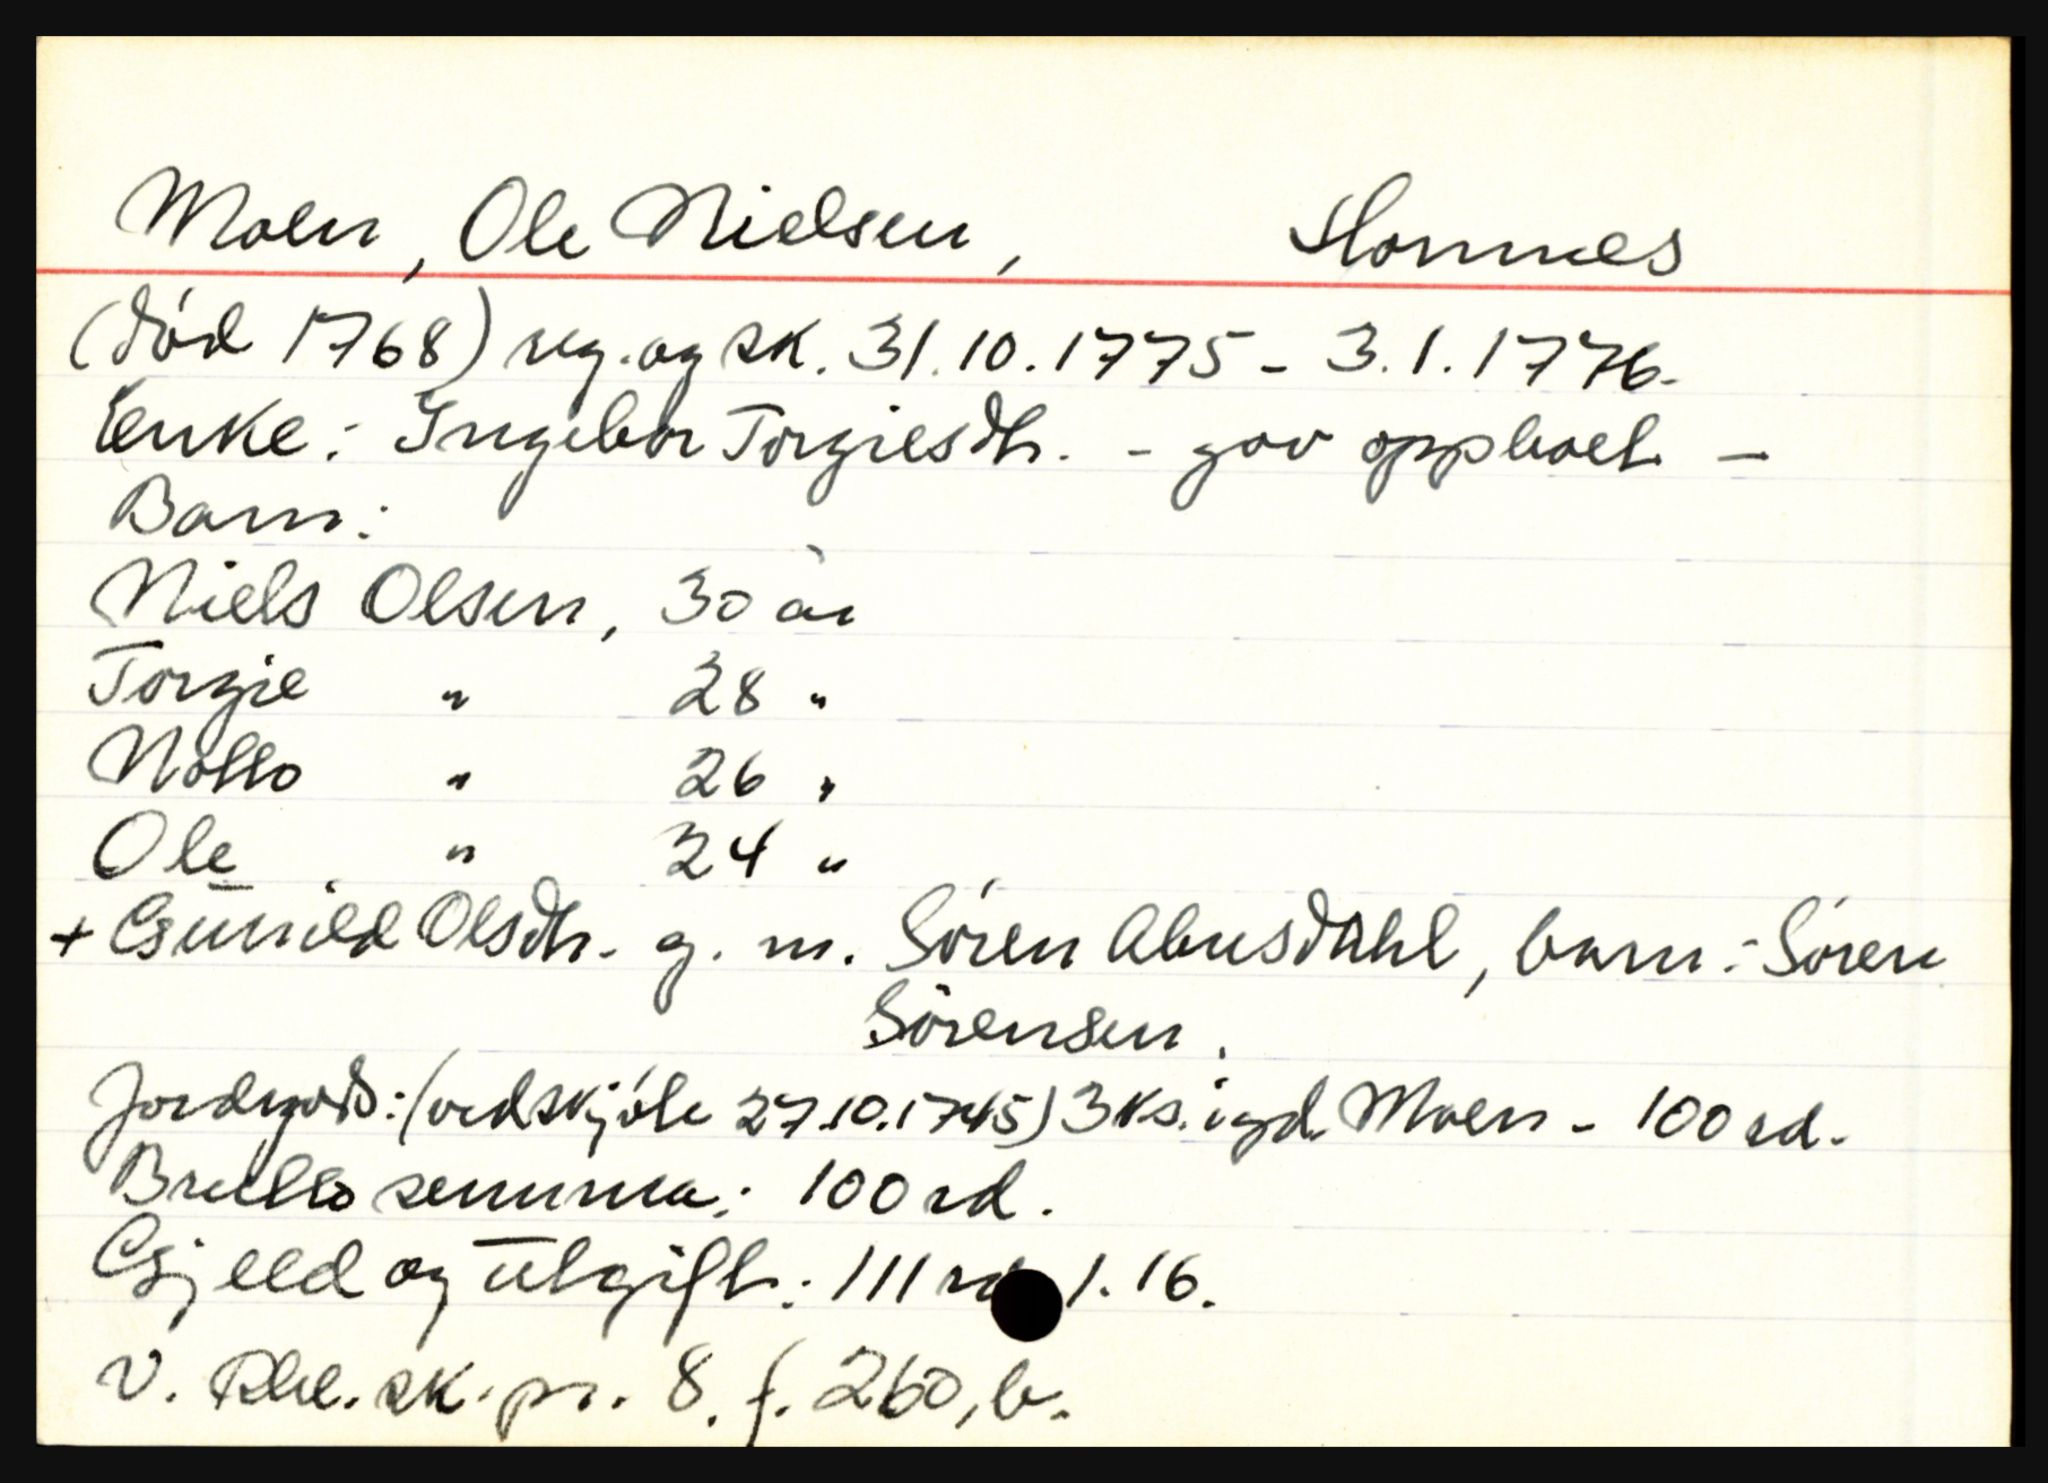 Moen, Ole Nielsen, Hommes
(død 1768) reg. og sk. 31.10.1775 - 3.1.1776.
Enke: Ingebor Torgiesdtr. - gav oppboet -
Barn:
Niels Olsen, 30 år
Torgie " 28 "
Notto " 26 "
Ole " 24 "
+ Gunild Olsdtr. g. m. Søren Abusdahl, barn: Søren
Sørensen.
Jordgods: (ved skjøte 27.10.1745) 3 ks. i gd. Moen - 100 rd.
Brutto summa: 100 rd.
Gjeld og utgift: 111 rd 1. 16.
V. Rbl. sk. pr. 8. f. 260, b.